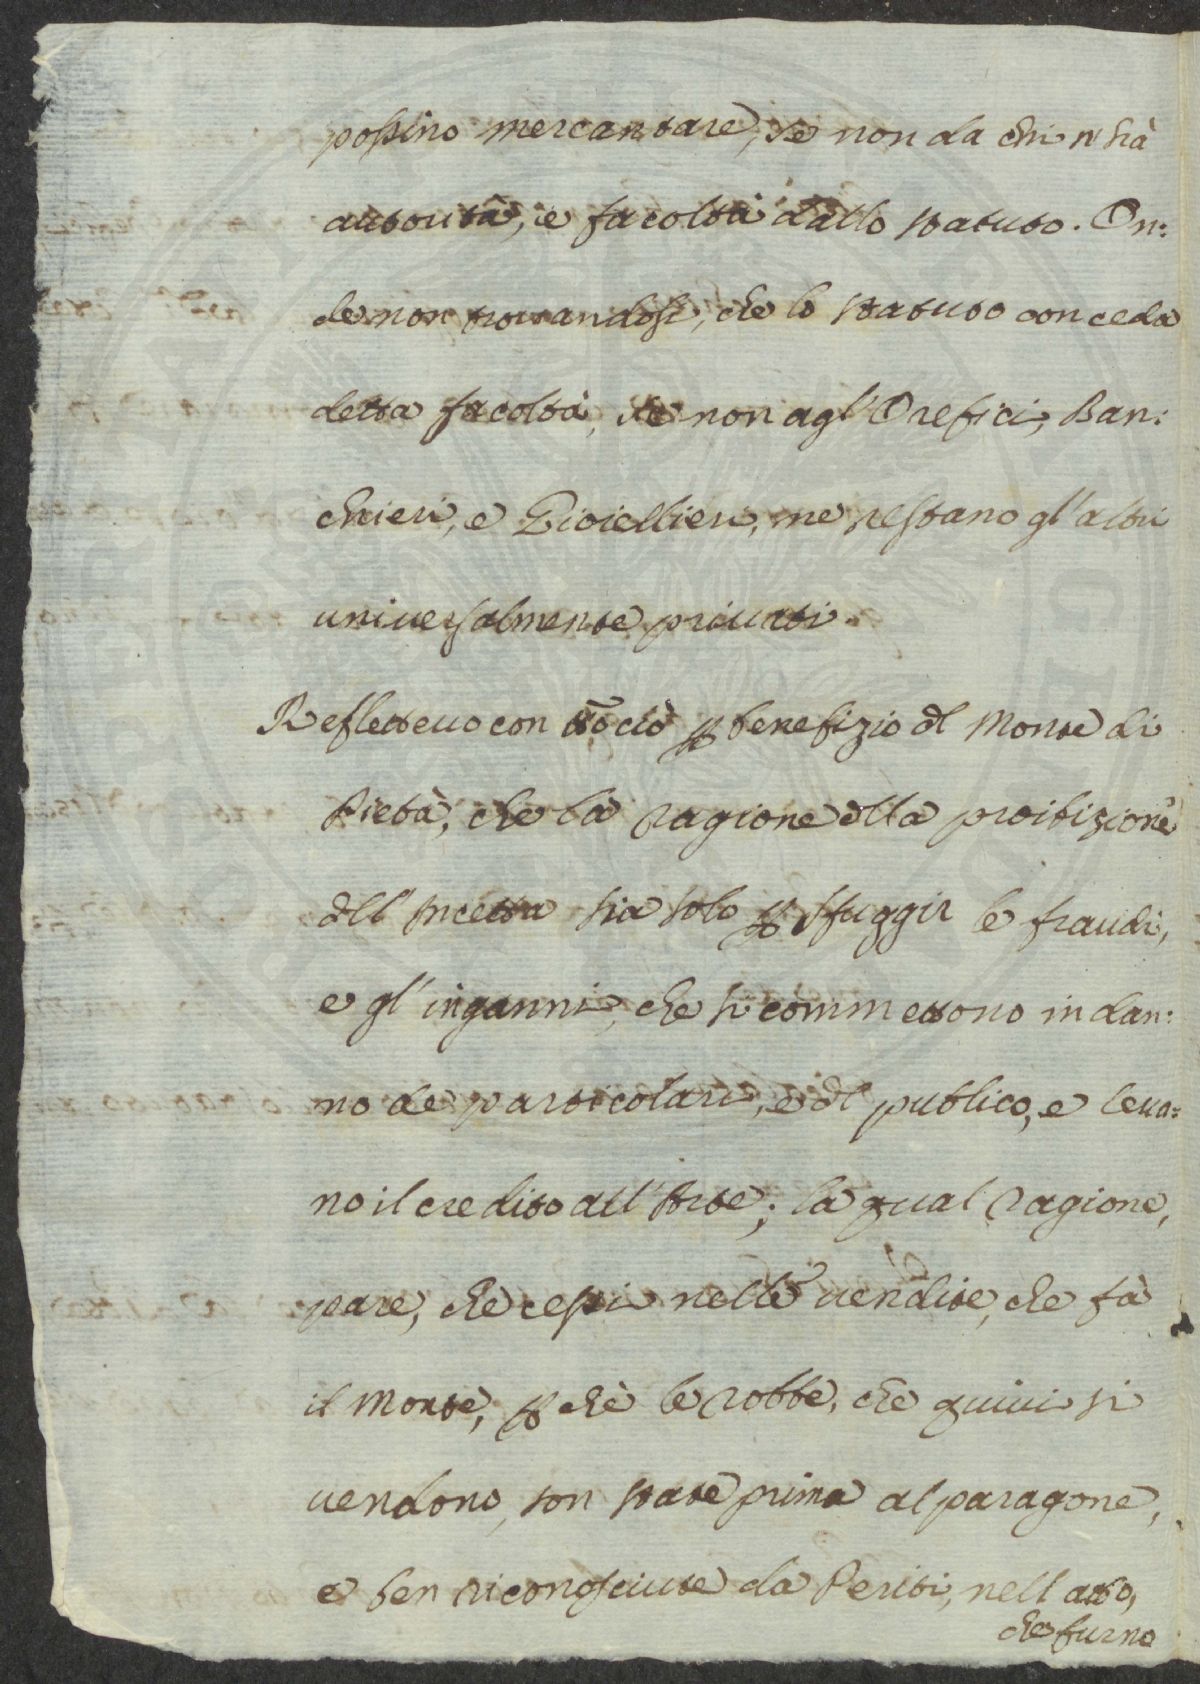 possino mercantare, se non da chi n'hà
autorità, e facoltà dallo statuto. On:
de non trovandosi, che lo statuto conceda
detta facoltà, se non agl'Orefici, Ban:
chieri, e Gioiellieri, ne restano gl'altri
universalmente privati.
Refletteuo con tt̄o ciò ꝑ benefizio dl Monte di
Pietà, che la ragione dlla proibizione
dll'Incetta sia solo ꝑ sfuggir le fraudi,
e gl'inganni, che si commettono in dan:
no de particolari, e dl publico, e leua=
no il credito all'Arte; la qual ragione,
pare, che cessi nelle uendite, che fà
il Monte, ꝑ chè le robbe, che quiui si
uendono, son state prima al paragone,
e ben riconosciute da Periti, nell atto,
che furno